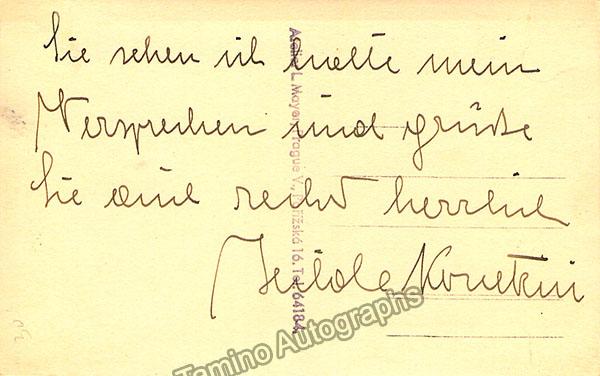 Sie sehen ich halte mein
Versprechen und grüße
Sie auf recht herzlich
Hilde Konetzni
Atelier L. Mayer, Prague V., Pařížská 16. Tel. 64184.
Tamino Autographs